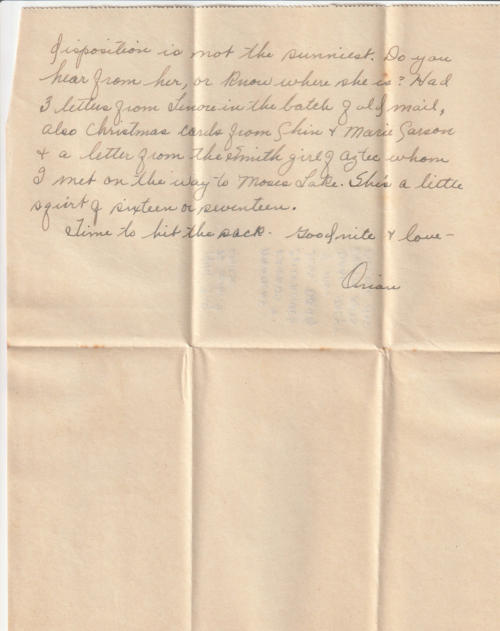 disposition is not the sunniest. Do you
hear from her, or know where she is? Had
3 letters from Lenore in the batch of old mail,
also Christmas cards from & Marie Garson
& a letter from the Smith girl of Aztec whom
I met on the way to Moses Lake. She's a little
squirt of sixteen or seventeen.
Time to hit the sack. Goodnite & love -